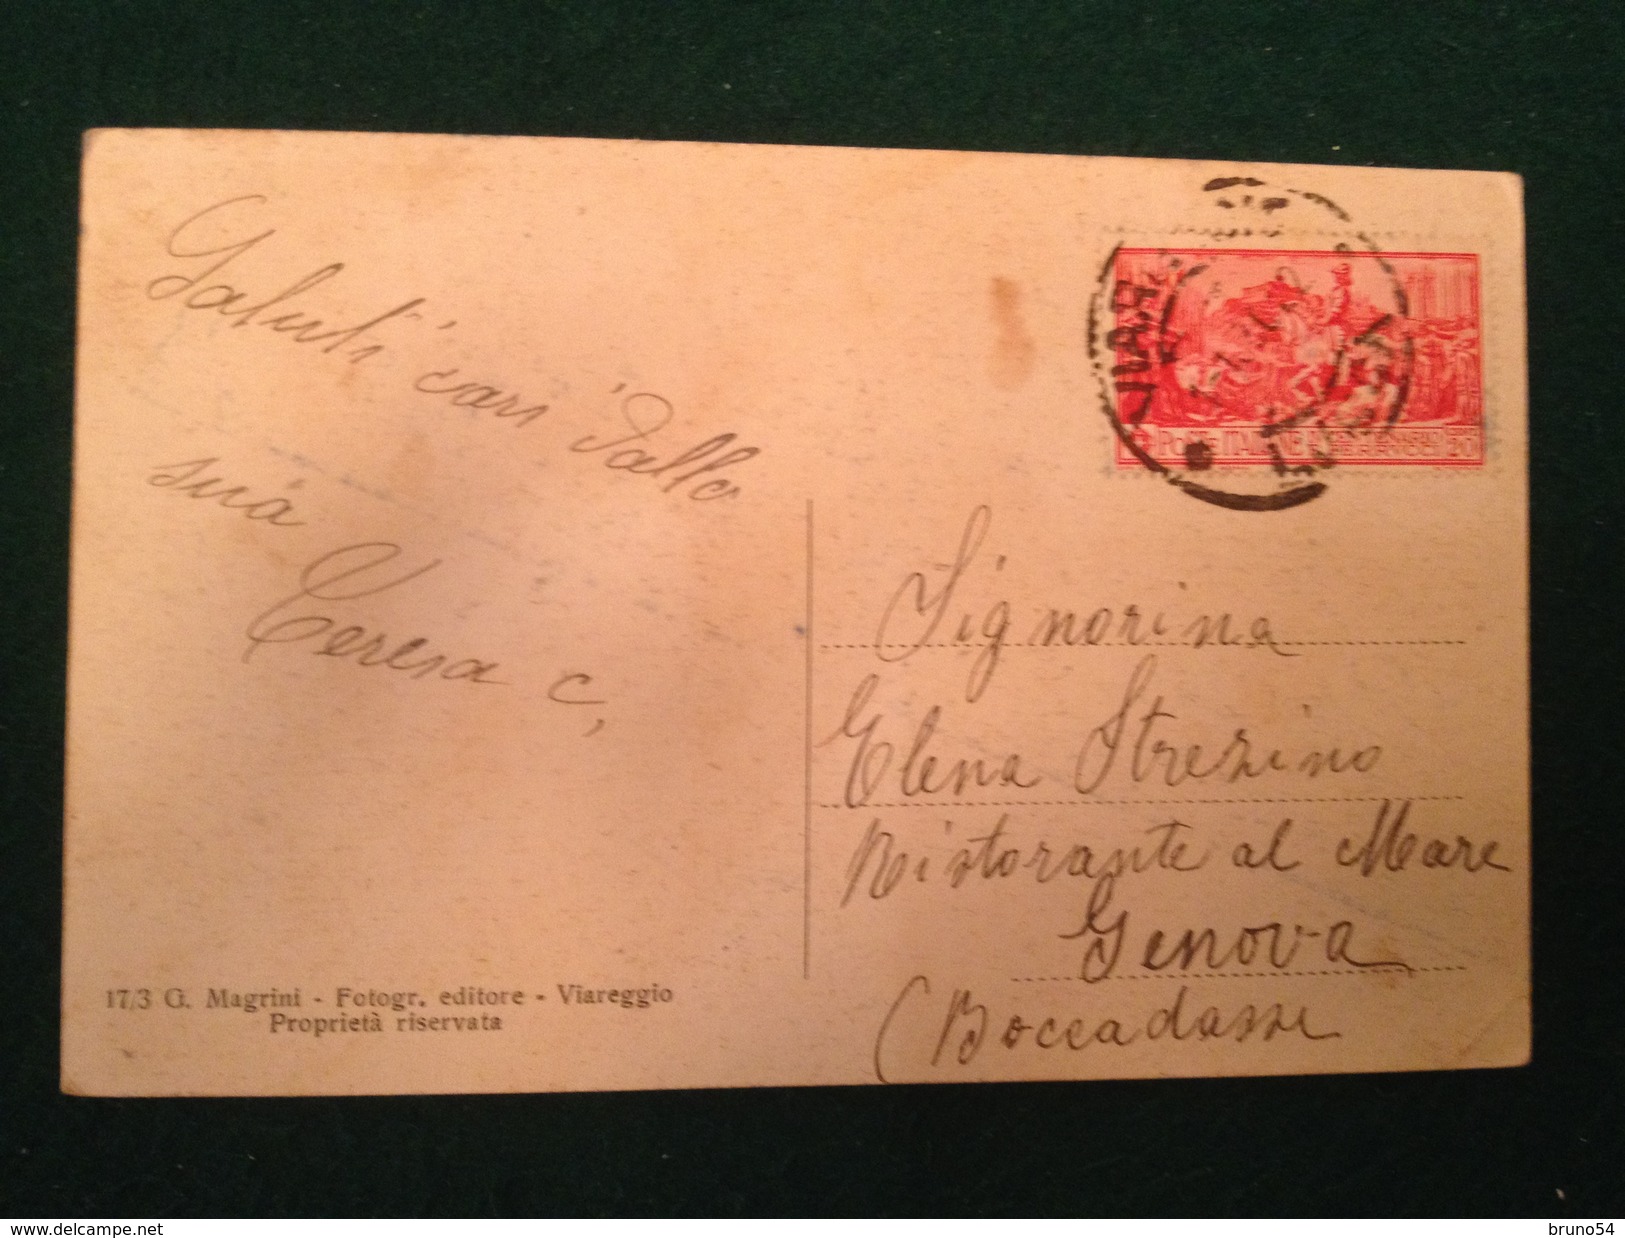 Saluti cari dalla
sua
Teresa C,
17/3 G. Magrini - Fotogr. editore - Viareggio
Proprietà riservata
POSTE ITALIANE
20
Signorina
Elena Strezino
Ristorante al Mare
Genova
(Boccadasse
delcampe.net
bruno54